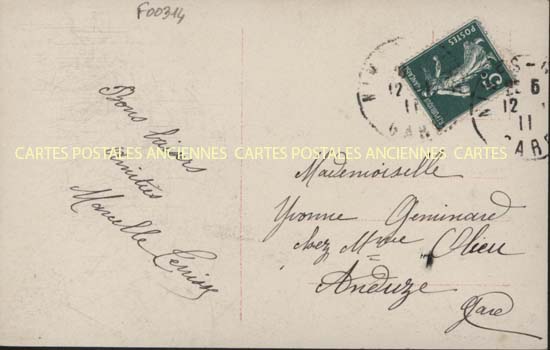 F00314
Bons baisers
Amitiés
Marcelle
POSTES
5c
12
11
GARD
6
12
11
GARD
CARTES POSTALES ANCIENNES CARTES POSTALES ANCIENNES CARTES
Mademoiselle
Yvonne Geminard
chez Mme
Anduze
Gard